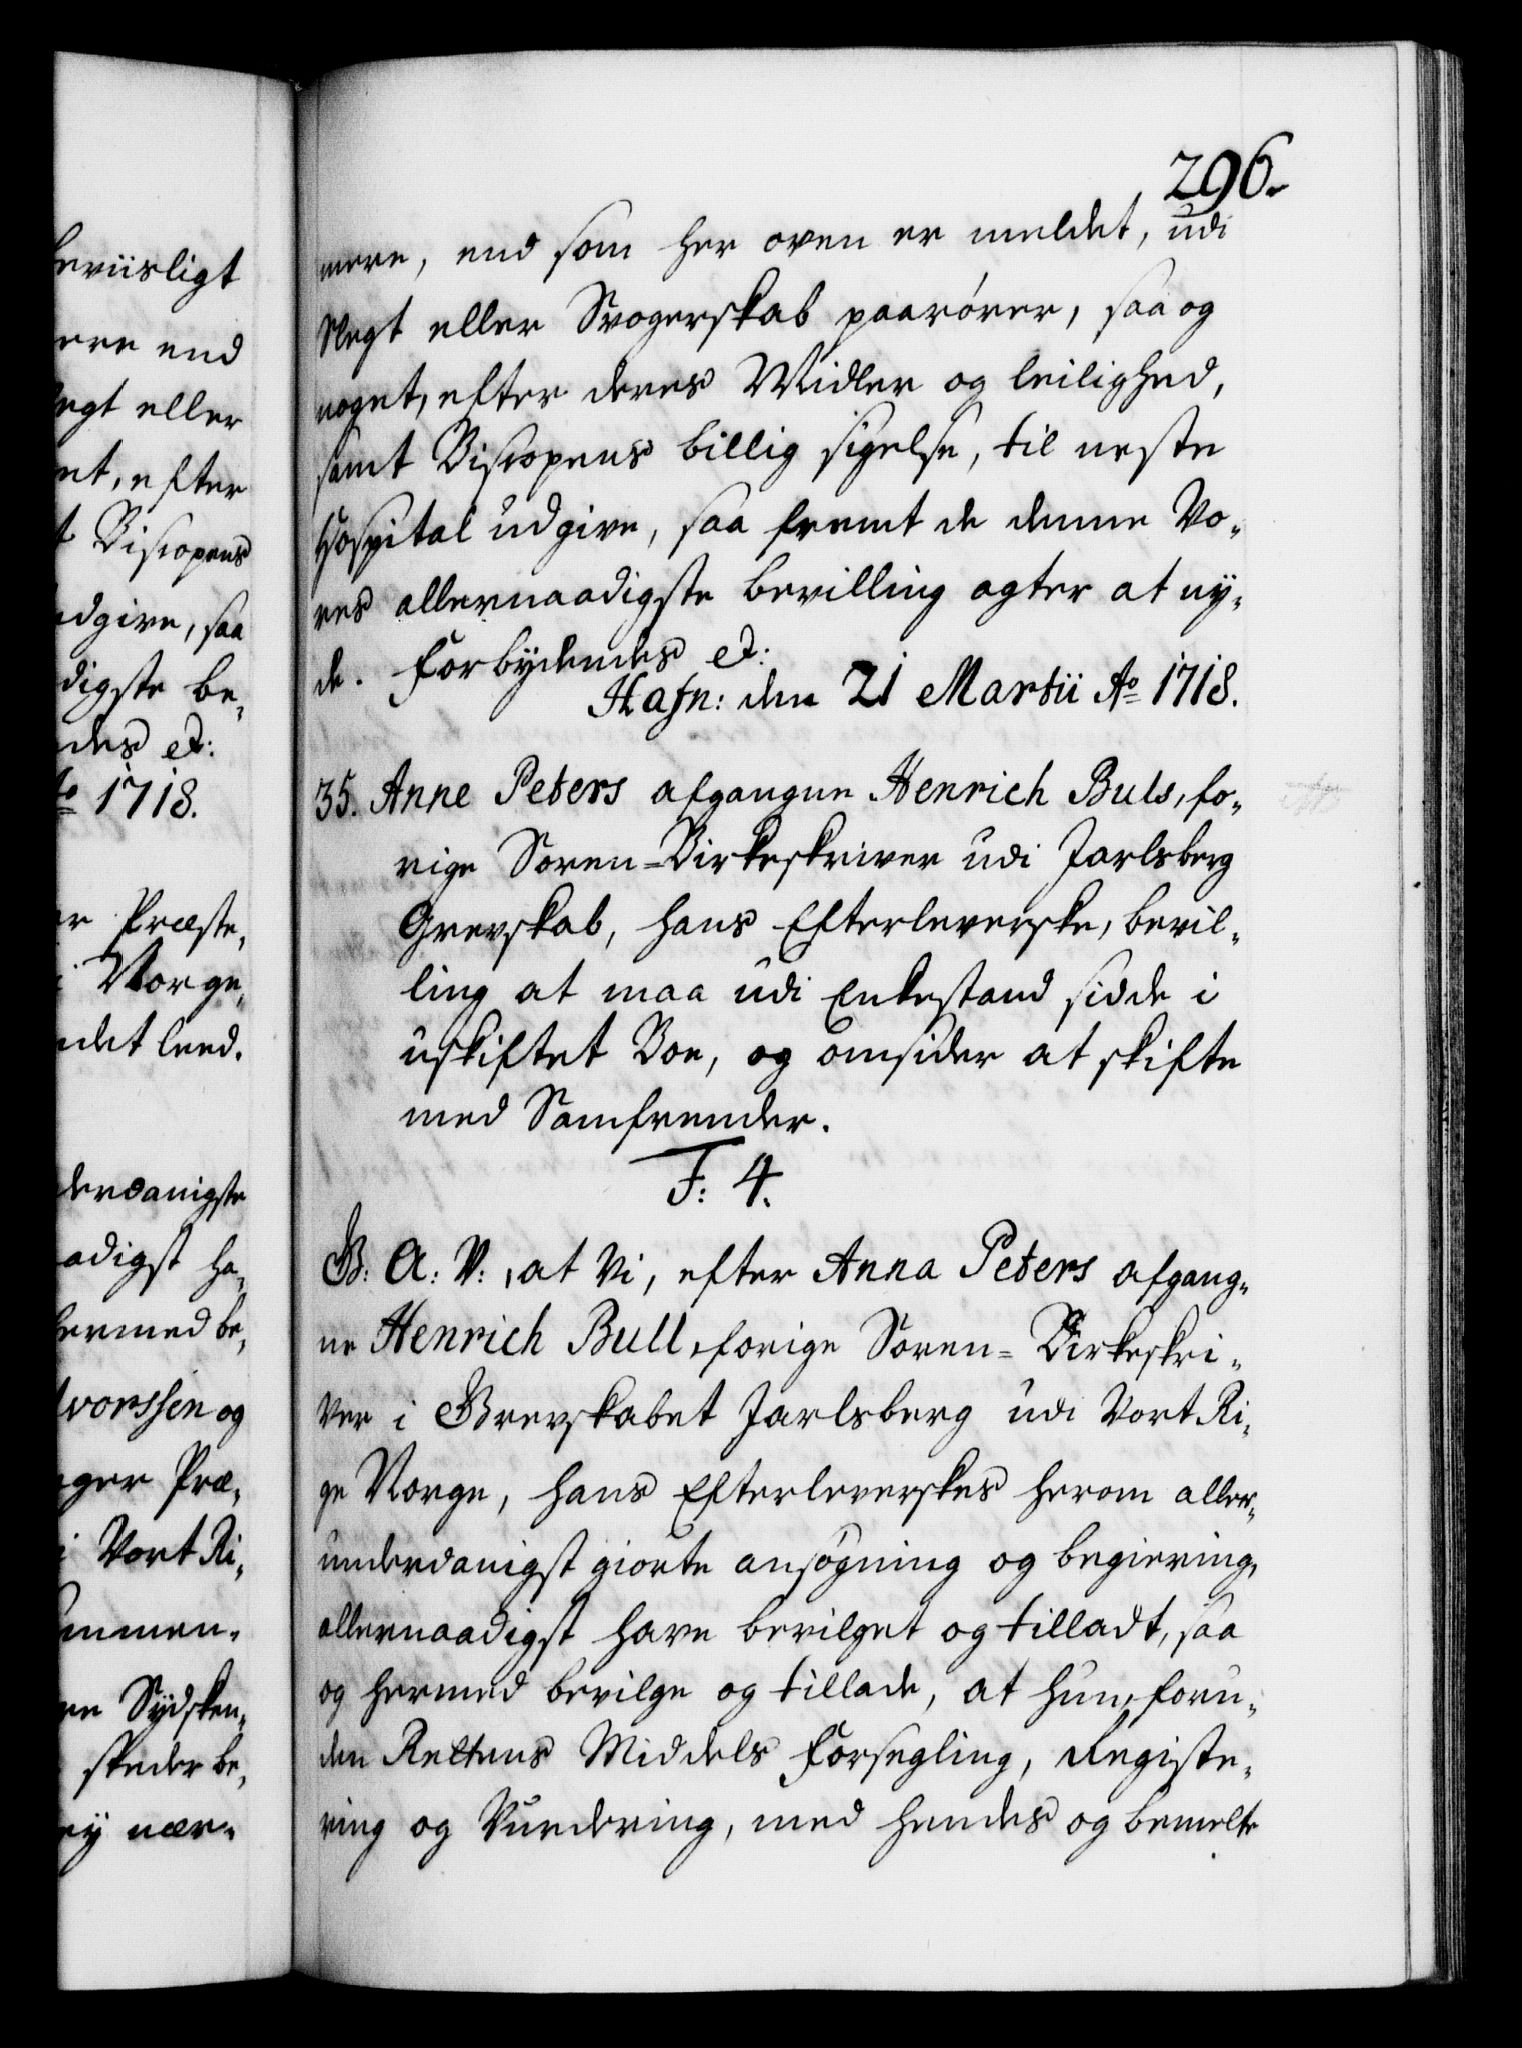 beviisligt
ere end
egt eller
et, efter
t Biscopens
udgive, saa
digste be„
des etc:
Ao 1718.
er Præste„
i Norge,
ndet leed.
derdanigste
aadigst ha„
hermed be„
lvorssen og
ger Præ„
i Vort Ri„
ammen„
re Sydsken„
skeder be„
ey nær„
296.
mere, end som her oven er meldet, udi
Slegt eller Svogerskab paarörer, saa og
noget, efter deres Midler og leilighed,
samt Biscopens billig sigelse, til neste
Hospital udgive, saa fremt de denne Vo„
res allernaadigste bevilling agter at ny„
de. Forbydendes etc:
Hafn: den 21 Martii Ao 1718.
35. Anne Peters afgangne Henrich Buls, fo„
rige Soren=Birkeskriver udi Jarlsberg
Grevskab, hans Efterleverske, bevil„
ling at maa udi Enkestand sidde i
uskiftet Boe, og omsider at skifte
med Samfrender.
F: 4.
G: A: V:, at Vi, efter Anna Peters afgang„
ne Henrich Bull, forige Soren=Birkeskri„
ver i Grevskabet Jarlsberg udi Vort Ri„
ge Norge, hans Efterleverskes herom aller„
underdanigst giorte ansögning og begiering,
allernaadigst have bevilget og tilladt, saa
og hermed bevilge og tillade, at hun, foru„
den Rettens Middels Forsegling, Registe„
ring og Vurdering, med hendes og bemelte